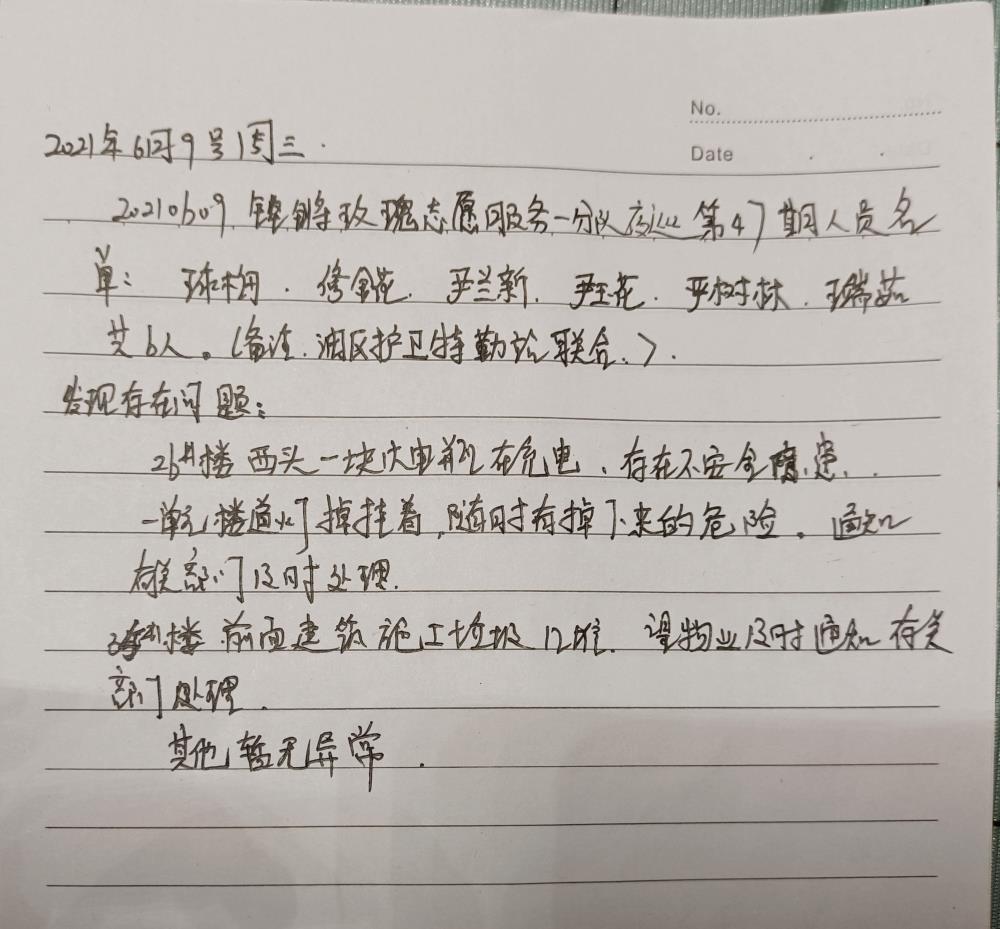 No.
Date
2021年6月9号周三.
20210609 铿锵玫瑰志愿服务一分队夜巡第47期人员名
单: 球梅. 修金花. 尹兰新. 尹玉花. 平树林. 瑞茹
共6人。(备注.油区护卫特勤站联合.).
发现存在问题:
26#楼西头一块大电瓶在充电、存在不安全隐患.
一单元楼道灯掉挂着,随时有掉下来的危险。通知
有关部门及时处理.
#楼前面建筑施工垃圾12堆.望物业及时通知有关
部门处理.
其他暂无异常.